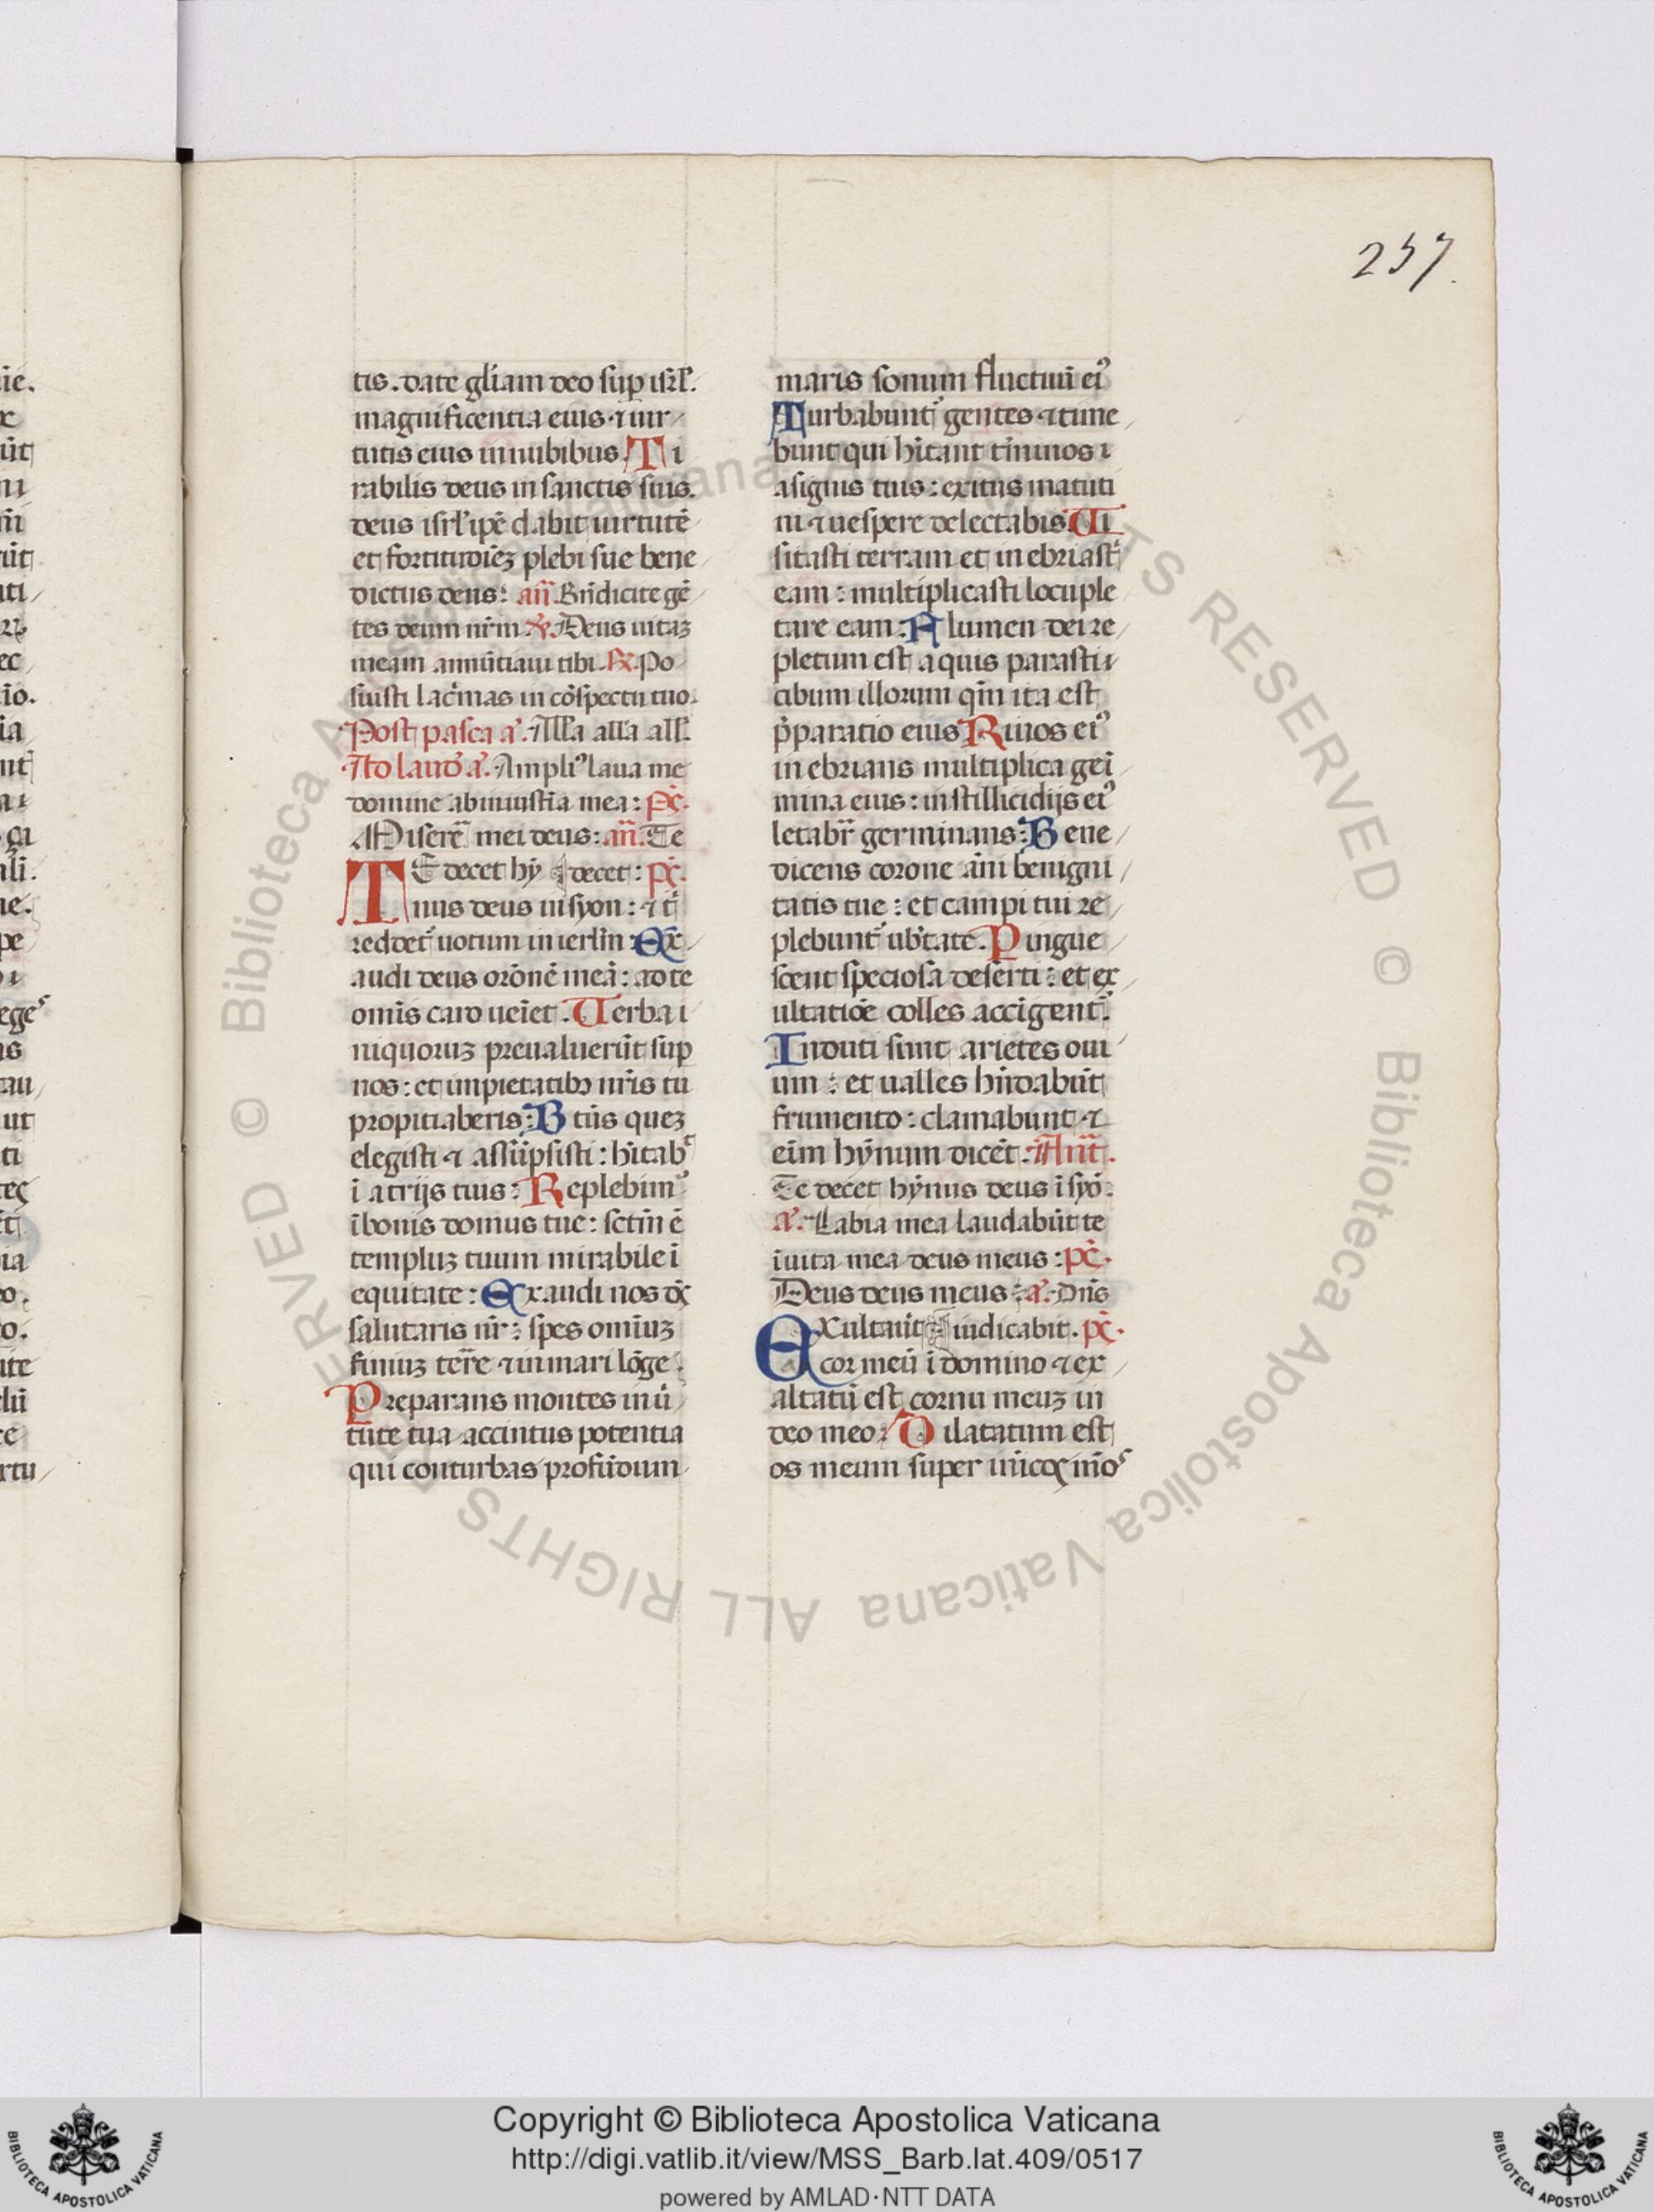 257.
tis. date gl̄iam deo sup̄ isr̄l.
magnificentia eius ⁊ uir
tutis eius in nubibus. Ti
rabilis deus in sanctis suis.
deus isr̄l ip̄e dabit uirtutē
et fortitudīeꝫ plebi sue bene
dictus deus: añ. Bn̄dicite gē
tes deum nr̄m ℣. Deus uitaꝫ
meam annūtiaui tibi. ℟. Po
suisti lac̄mas in cōspectu tuo.
Post pasca a. All̄a all̄a all̄.
Ad laud̄ a. Ampliꝰ laua me
domine ab iniustitia mea: pc̄.
Misere mei deus: añ. Te
TE decet hy decet: pc̄.
nus deus in syon: ⁊ t̄
reddet᷑ uotum in ierl̄m: Ex
audi deus orōnē meā: ad te
omīs caro ueīet. Uerba i
niquoruꝫ preualuerūt sup̄
nos: et impietatibꝫ nr̄is tu
propitiaberis: B tūs queꝫ
elegisti ⁊ assūpsisti: hītab
ī atrijs tuis: Replebimꝰ
ī bonis domus tue: sc̄tm̄ ē
templuꝫ tuum mirabile ī
equitate: Exaudi nos dꝰ
salutaris nr̄: spes omīuꝫ
finiuꝫ terre ⁊ in mari lōge.
Preparans montes in ū
tute tua accintus potentia
qui conturbas profūdum
maris sonum fluctuū eiꝰ
Turbabunt᷑ gentes ⁊ time
bunt qui hītant tīninos i
a signis tuis: exitus matuti
ni ⁊ uespere delectabis. Ui
sitasti terram et in ebriasti
eam: multiplicasti locuple
tare eam: F lumen dei re
pletum est aquis parasti
cibum illorum qm̄ ita est
p̄paratio eius Riuos eiꝰ
in ebrians multiplica geī
mina eius: in stillicidijs eiꝰ
letabr̄ germinans: Bene
dicens corone āni benigni
tatis tue: et campi tui re
plebunt᷑ ub̄tate. Pingue
scent speciosa deserti: et ex
ultatiōe colles accīgent᷑.
Induti sunt arietes oui
um: et ualles hn̄dabūt
frumento: clamabunt ⁊
eīm hȳnum dicēt. Ant̄.
Te decet hȳnus deus ī syō.
a. Labia mea laudabūt te
ī uita mea deus meus: pc̄.
Deus deus meus: a. Dn̄s
EXultauit iudicabit. pc̄.
cor meū ī domino ⁊ ex
altatū est cornu meuꝫ in
deo meo: Dilatatum est
os meum super inīcos mōs
Copyright © Biblioteca Apostolica Vaticana
http://digi.vatlib.it/view/MSS_Barb.lat.409/0517
powered by AMLAD·NTT DATA